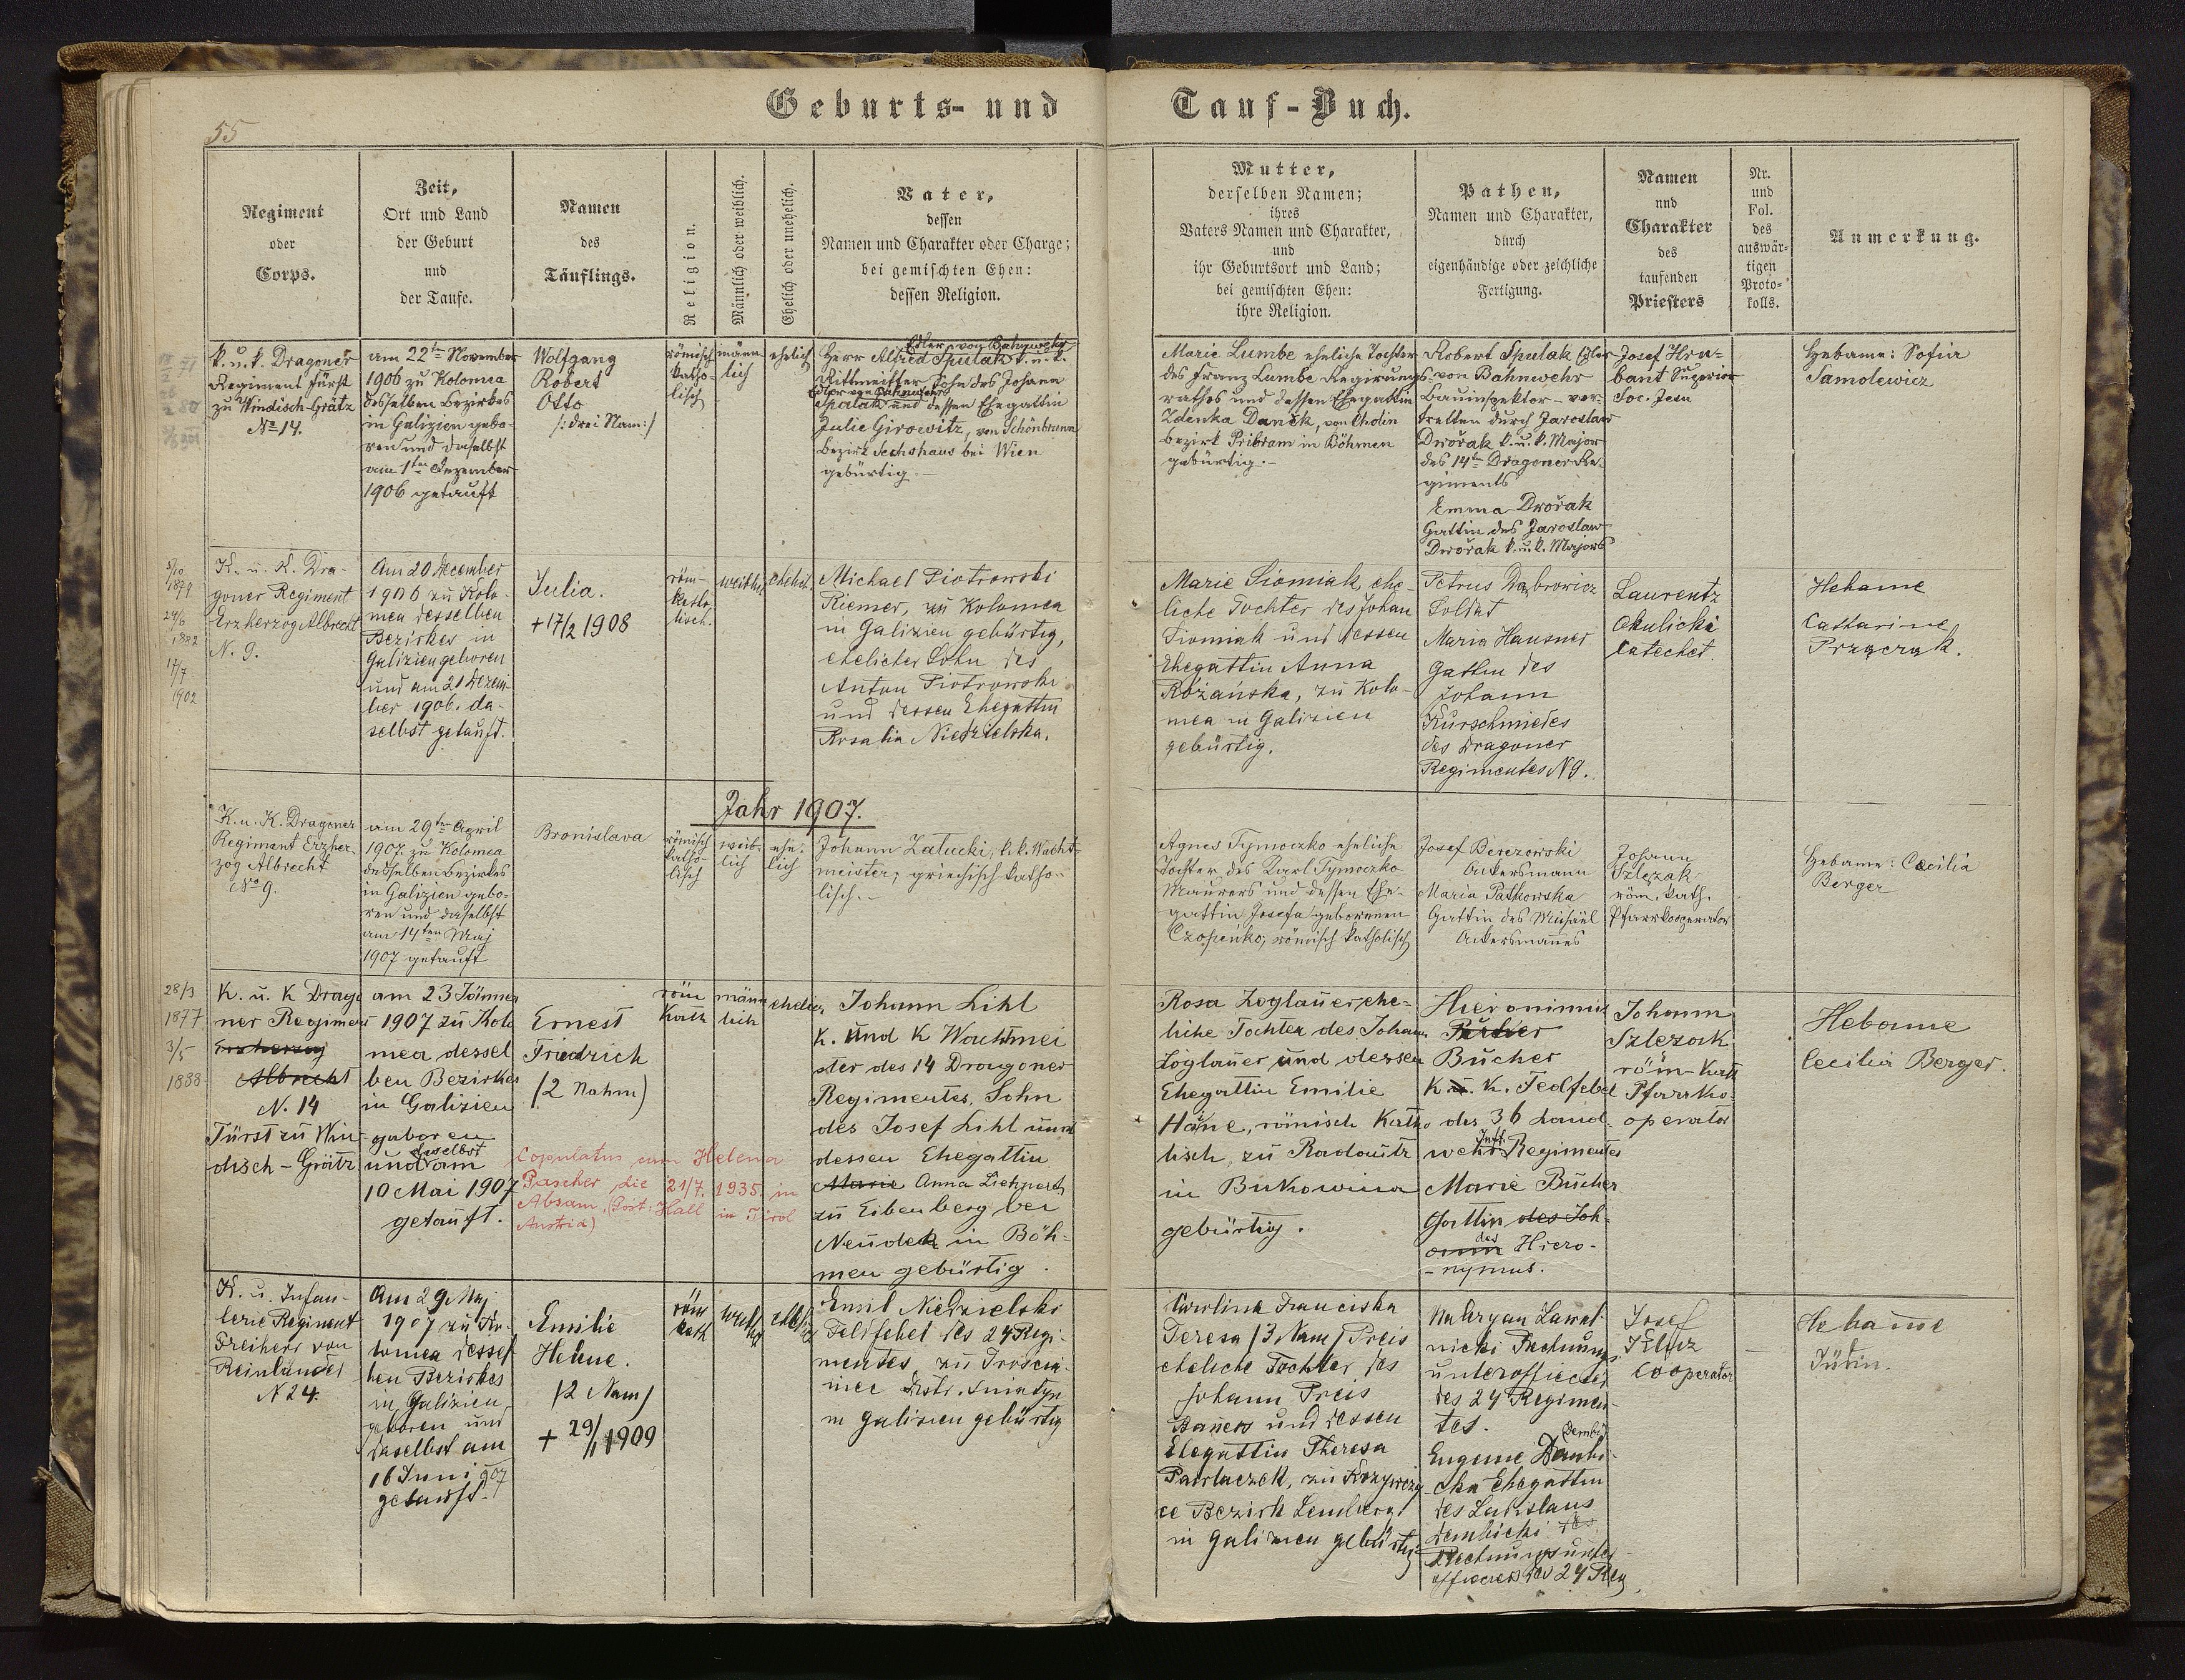 55
Geburts- und Tauf-Buch.
Regiment
oder
Corps.
Zeit,
Ort und Land
der Geburt
und
der Taufe.
Namen
des
Täuflings.
Religion.
Männlich oder weiblich.
Ehelich oder unehelich.
Vater,
dessen
Namen und Charakter oder Charge;
bei gemischten Ehen:
dessen Religion.
Mutter,
derselben Namen;
ihres
Vaters Namen und Charakter,
und
ihr Geburtsort und Land;
bei gemischten Ehen:
ihre Religion.
Pathen,
Namen und Charakter,
durch
eigenhändige oder zeichliche
Fertigung.
Namen
und
Charakter
des
taufenden
Priesters
Nr.
und
Fol.
des
auswär-
tigen
Proto-
kolls.
Anmerkung.
k. u. k. Dragoner
Regiment Fürst
zu Windisch-Grätz
No 14.
am 22ten November
1906 zu Kolomea
desselben Bezirkes
in Galizien gebo-
ren und daselbst
am 1ten Dezember
1906 getauft
Wolfgang
Robert
Otto
/: drei Nam :/
römisch
katho-
lisch
männ
lich
ehelich
Edler von Bahnwehr
Herr Alfred Spulak k. u. k.
Rittmeister Sohn des Johann
Edler von Bahnwehr
Spulak und dessen Ehegattin
Julie Girowitz, von Schönbrunn
Bezirk Sechshaus bei Wien
gebürtig.-
Marie Lumbe eheliche Tochter
des Franz Lumbe Regirungs-
rathes und dessen Ehegattin
Zdenka Daněk, von Cholin
bezirk Pribram in Böhmen
gebürtig.-
Robert Spulak Edler
von Bahnwehr
Bauinspektor - ver-
tretten durch Jaroslaw
Dwořak k. u. k. Major
des 14ten Dragoner Re-
giments
Emma Dwořak
Gattin des Jaroslaw
Dwořak k. u. k. Majors
Josef Hru-
bant Superior
Soc. Jesu
Hebame: Sofia
Samolewicz
5/10
1879
24/6
1882
17/7
1902
K. u. K. Dra-
goner Regiment
Erzherzog Albrecht
N. 9.
Am 20 December
1906 zu Kolo-
mea desselben
Bezirkes in
Galizien geboren
und am 21 Dezem-
ber 1906. da-
selbst getauft.
Julia.
+ 17/2 1908
röm-
katho-
lisch.
weiblich
ehelich
Michael Piotrowski
Riemer, zu Kolomea
in Galizien gebürtig,
ehelicher Sohn des
Anton Piotrowski
und dessen Ehegattin
Rosalia Niedzielska.
Marie Siomiak, ehe-
liche Tochter des Johan
Siomiak und dessen
Ehegattin Anna
Różańska, zu Kolo-
mea in Galizien
gebürtig.
Petrus Dąbrowicz
Soldat
Maria Hausner
Gattin des
Johann
Kurschmiedes
des Dragoner
Regimentes N 9.
Laurentz
Okulicki
Catechet.
Hebame
Catharine
Przączak.
Jahr 1907.
K. u. K. Dragoner
Regiment Erzher-
zog Albrecht
No 9.
am 29ten April
1907. zu Kolomea
desselben Bezirkes
in Galizien gebo-
ren und daselbst
am 14ten Maj
1907 getauft
Bronislava
römisch
katho-
lisch
weib-
lich
ehe-
lich
Johann Zalucki, k. k. Wacht-
meister, griechisch katho-
lisch.-
Agnes Tymoczko eheliche
Tochter des Karl Tymoczko
Maurers und dessen Ehe-
gattin Josefa geborenen
Czopeńko, römisch katholisch
Josef Berezowski
Ackersmann
Maria Patkowska
Gattin des Michäel
Ackersmanes
Johann
Szlęzak
röm. kath.
Pfarrkooperator
Hebame: Cæcilia
Berger
28/3
1877
3/5
1888
K. u. K Drago
ner Regiment
Erzherzog
Albrecht
N. 14
Fürst zu Win-
disch-Grätz
am 23 Jänner
1907 zu Kolo
mea dessel
ben Bezirkes
in Galizien
geboren
daselbst
und am
10 Mai 1907
getauft.
Ernest
Friedrich
(2 Nahm)
Copulatus cum Helena
Pascher die 21/7. 1935. in
Absam, (Post: Hall in Tirol
Austria)
röm
Kath
männ
lich
ehelich
Johann Lihl
K. und K Wachtmei
ster des 14 Dragoner
Regimentes, Sohn
des Josef Lihl und
dessen Ehegattin
Marie Anna Liehnert
zu Eibenberg bei
Neudek in Böh-
men gebürtig.
Rosa Zoglauer, ehe-
liche Tochter des Johan
Zoglauer und dessen
Ehegattin Emilie
Hane, römisch Katho
lisch, zu Radautz
in Bukowina
gebürtig.
Hieronimus
Bucher
K. u. K. Feldfebel
des 36 Land-
Inft.
wehr Regimentes
Marie Bucher
Gattin des Joh-
ann des Hiero-
-nymus.
Johann
Szlezak
röm-Kath
Pfarrko-
operator
Hebame
Cecilia Berger.
K. u. Infan-
terie Regiment
Freiherr von
Reinländer
N 24.
Am 29 Maj
1907 zu Ko-
lomea dessel-
ben Bezirkes
in Galizien
geboren und
daselbst am
16 Juni 907
getauft.
Emilie
Helene.
(2 Nam)
+ 29/11 1909
röm
kath
weiblich
ehelich
Emil Niedzielski
Feldfebel des 24 Regi-
mentes, zu
Distr. Sniatyn
in Galizien gebürtig
Carolina Franciska
Teresa (3 Nam) Preis
eheliche Tochter des
Johann Preis
Bauers und dessen
Ehegattin Theresa
Pawlaczek, zu
ce Bezirk Lemberg
in Galizien gebürtig
Lawal-
nicki Rechnungs
unterofficier
des 24 Regimen-
tes.
Dembi
Eugenie Dembi-
cka Ehegattin
des Ladislaus
Dembicki des
Rechnungsunter
officiers des 24 Reg.
Josef
Cooperator
—
Hebamme
Jüdin.